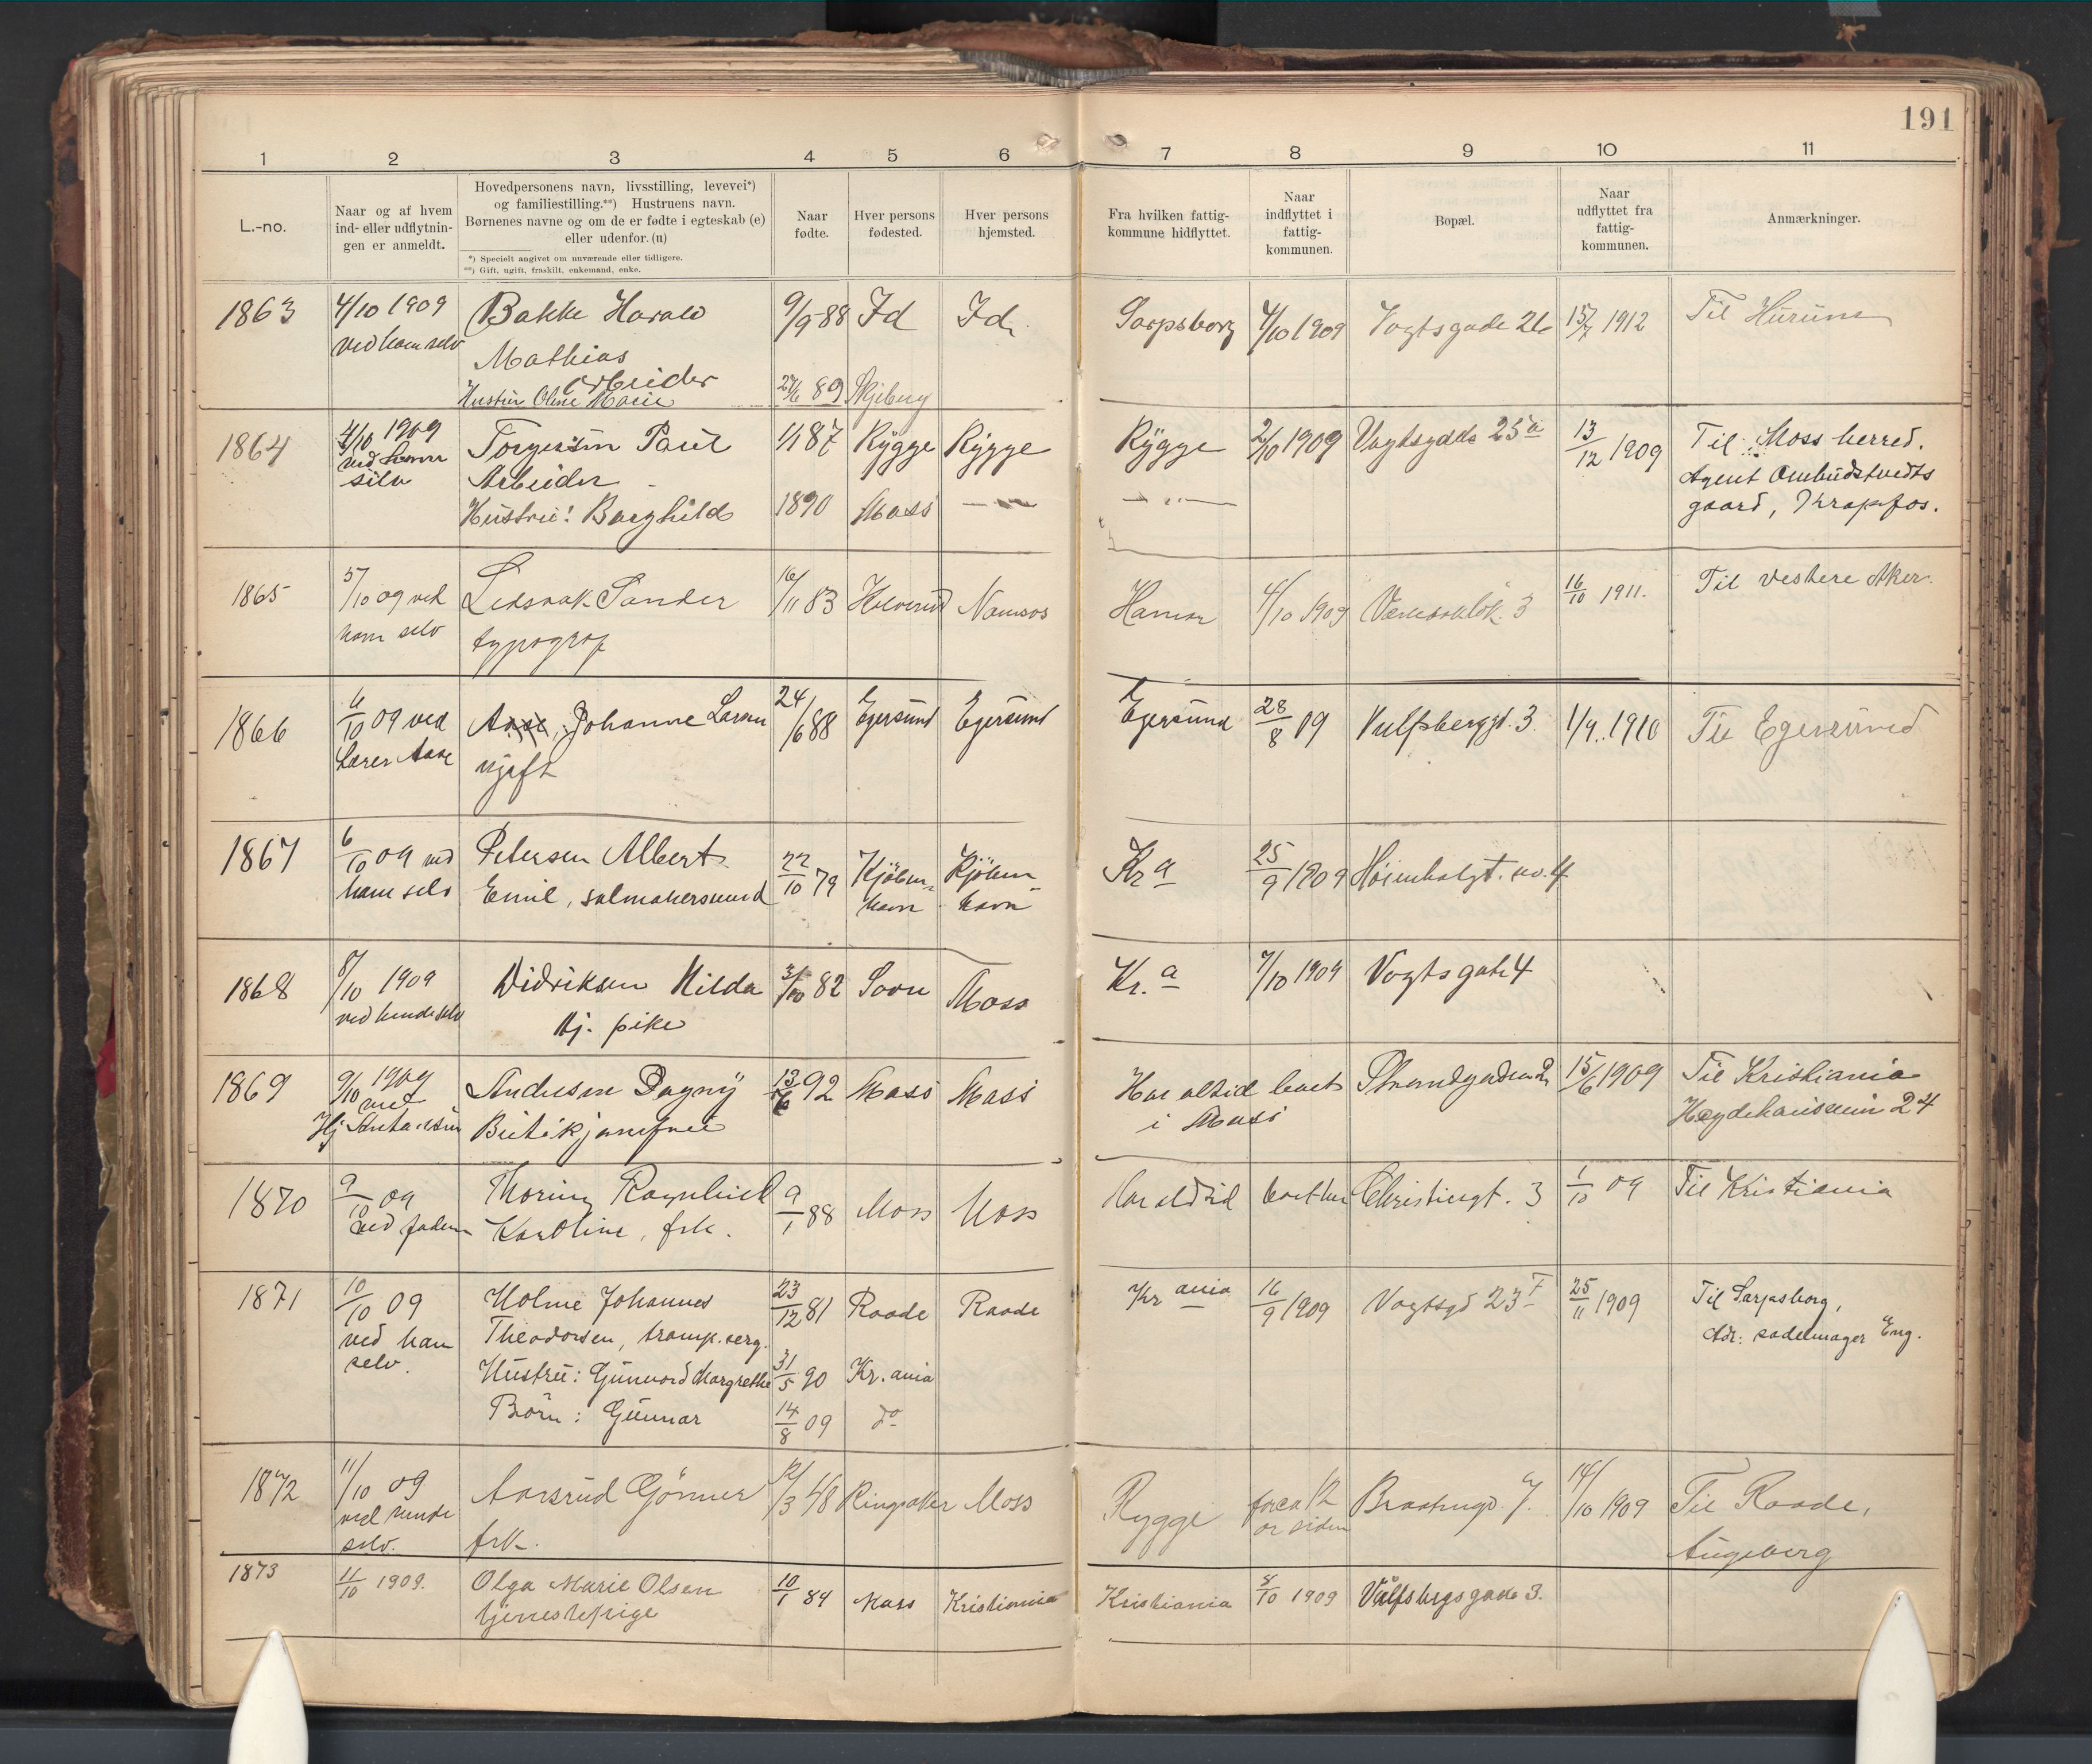 191
1 2 3 4 5 6 7 8 9 10 11
L.-no.
Naar og af hvem
ind- eller udflytnin-
gen er anmeldt.
Hovedpersonens navn, livsstilling, levevei*)
og familiestilling.**) Hustruens navn.
Børnenes navne og om de er fødte i egteskab (e)
eller udenfor. (u)
*) Specielt angivet om nuværende eller tidligere.
**) Gift, ugift, fraskilt, enkemand, enke.
Naar
fødte.
Hver persons
fødested.
Hver persons
hjemsted.
Fra hvilken fattig-
kommune hidflyttet.
Naar
indflyttet i
fattig-
kommunen.
Bopæl.
Naar
udflyttet fra
fattig-
kommunen.
Anmærkninger.
1863 4/10 1909 Bakke Harald 9/9 88 Id Id Sarpsborg 4/10 1909 Vogtsgade 1912 Til Hurum
ved ham selv
Mathias
Arbeider
Hustru Oline Marie 89 Skjeberg
1864 4/10 1909 Torgersen Paul 87 Rygge Rygge Rygge 2/10 1909 25a 13/12 1909 Til Moss herred.
ved ham
selv Arbeider Agent Ombudstvedts
Hustru: Borghild 1890 Moss gaard, Krapfos.
1865 5/10 09 ved Sander 16/11 83 Namsos Hamar 4/10 1909 3 16/10 1911. Til vestere Aker.
ham selv typograf
1866 6/10 09 ved Aase, Johanne Larsen 24/6 88 Egersund Egersund Egersund 28/8 09 Vulfsberggd. 3. 1/9 1910 Til Egersund
Aase ugift
1867 6/10 09 ved Petersen Albert 22/10 79 Kjöben- Kjöben- Kra 25/9 1909
ham selv Emil, salmakersvend havn havn
1868 8/10 1909 Didriksen Hilda 82 Soon Moss Kr.a 7/10 1909 Vogtsgate 4
ved hende selv tj. pike
1869 9/10 1909 Andersen Dagny 92 Moss Moss Har altid boet Strandgaden 15/6 1909 Til Kristiania
ved Butikjomfru i Moss 24
1870 9/10 09 Thoring Ragnhild 9/1 88 Moss Moss Har altid boet her Christiesgt. 3 1/10 09 Til Kristiania
ved faderen Karoline, frk.
1871 10/10 09 Holme Johannes 23/12 81 Raade Raade Kr ania 16/9 1909 Vogtsgd 23 25/11 1909 Til Sarpsborg,
ved ham Theodorsen, tramp. serg. Adr: sadelmager Eng.
selv. Hustru: Gunvord Margrethe 31/5 90 Kr. ania
Börn: Gunnar 14/8 09 do
1872 11/10 09 Aarsrud Gönner 12/3 48 Ringsaker Moss Rygge 7. 14/10 1909 Til Raade,
ved hende or siden
selv. frk. Augeberg
1873 11/10 1909. Olga Marie Olsen 10/1 84 Moss Kristiania Kristiania 8/10 1909 Vålfsbergsgade 3.
tjenestepige